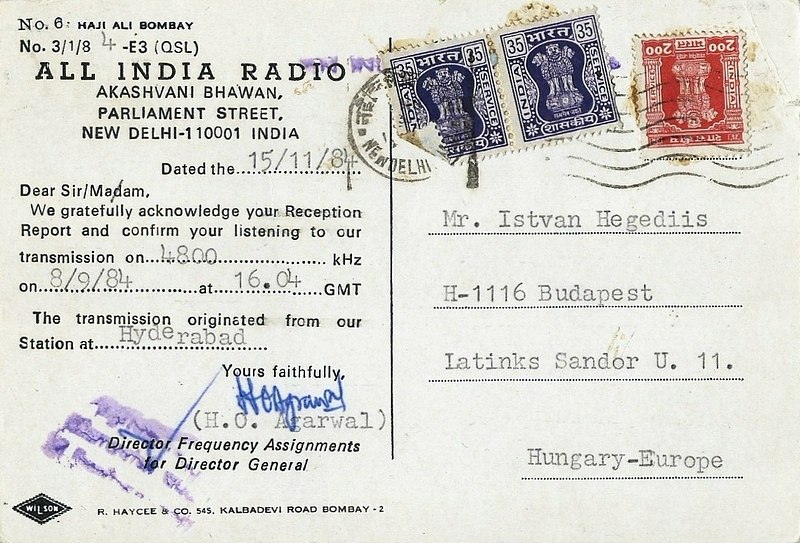 No. 6: HAJI ALI BOMBAY
No. 3/1/84-E3 (QSL)
ALL INDIA RADIO
AKASHVANI BHAWAN,
PARLIAMENT STREET,
NEW DELHI-110001 INDIA
Dated the 15/11/84
Dear Sir/Madam,
We gratefully acknowledge your Reception
Report and confirm your listening to our
transmission on 4800 kHz
on 8/9/84 at 16.04 GMT
The transmission originated from our
Station at Hyderabad
Yours faithfully,
HOAgrawal
(H.O. Agarwal)
Director Frequency Assignments
for Director General
WILSON
R. HAYCEE & CO. 545, KALBADEVI ROAD BOMBAY - 2
35 भारत 35
INDIA SERVICE
शासकीय
35 भारत 35
INDIA SERVICE
सत्यमेव जयते
शासकीय
200 भारत 200
NEW DELHI
Mr. Istvan Hegediis
H-1116 Budapest
Latinks Sandor U. 11.
Hungary-Europe